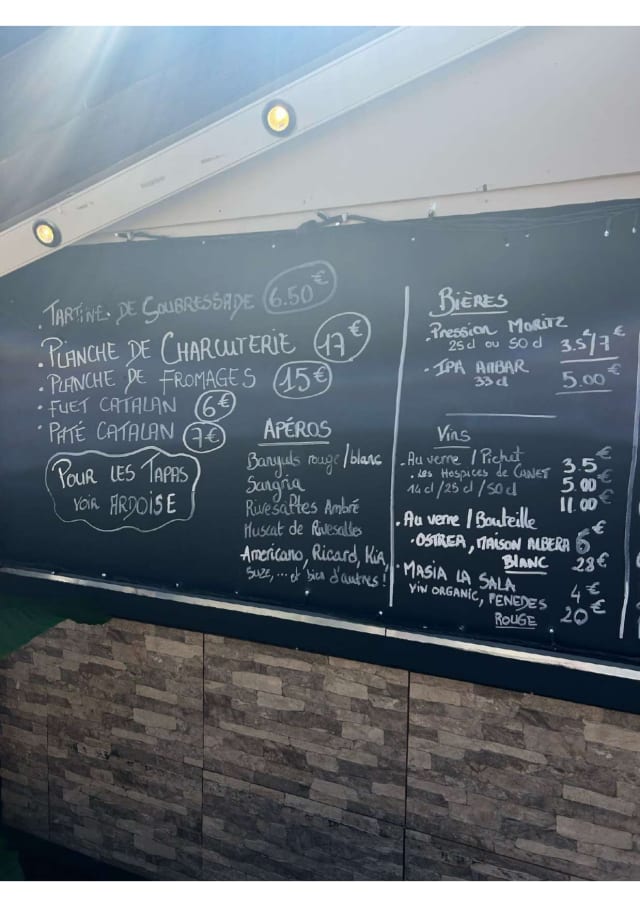 . TARTINE DE SOUBRESSADE 6.50€
. PLANCHE DE CHARCUTERIE 17€
. PLANCHE DE FROMAGES 15€
. FUET CATALAN 6€
. PATÉ CATALAN 7€
POUR LES TAPAS
VOIR ARDOISE
APÉROS
Banyuls rouge/blanc
Sangria
Rivesaltes Ambré
Muscat de Rivesaltes
Americano, Ricard, Kir,
SUZE, ... et bien d'autres!
BIÈRES
. Pression MORITZ
25cl ou 50cl 3.5€/7€
. IPA AMBAR
33cl 5.00€
Vins
. Au verre / Pichet
. Les Hospices de CANET 3.5€
14cl/25cl/50cl 5.00€
11.00€
. Au verre / Bouteille
. OSTREA, MAISON ALBERA 6€
BLANC 28€
. MASIA LA SALA 4€
VIN ORGANIC, PENEDES
ROUGE 20€